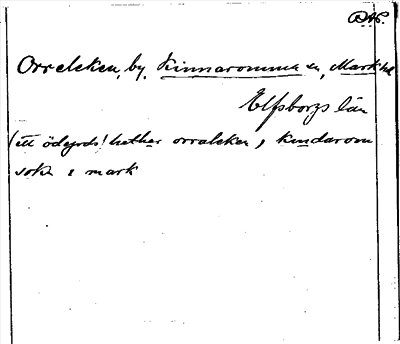 DAP.
Orreleken, by, Kinnaromma sn, Marks hd
Elfsborgs län
(ett ödejrds! hether orraleken i kindarom
sokn i mark